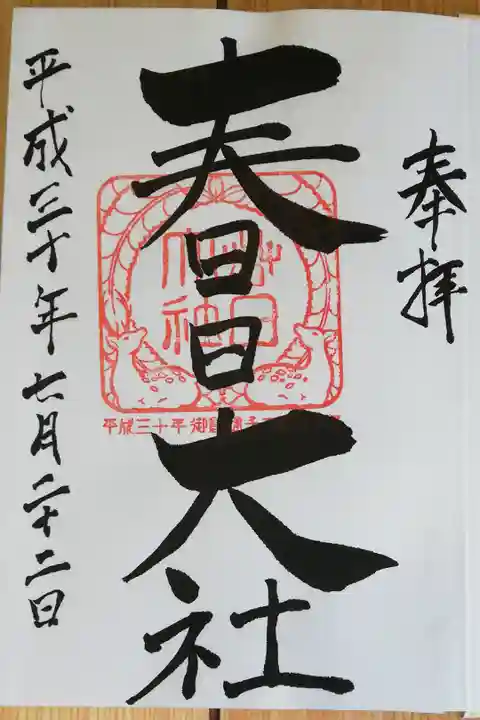 奉拝
春日大社
平成三十年七月二十二日
春日
大社
平成三十年御